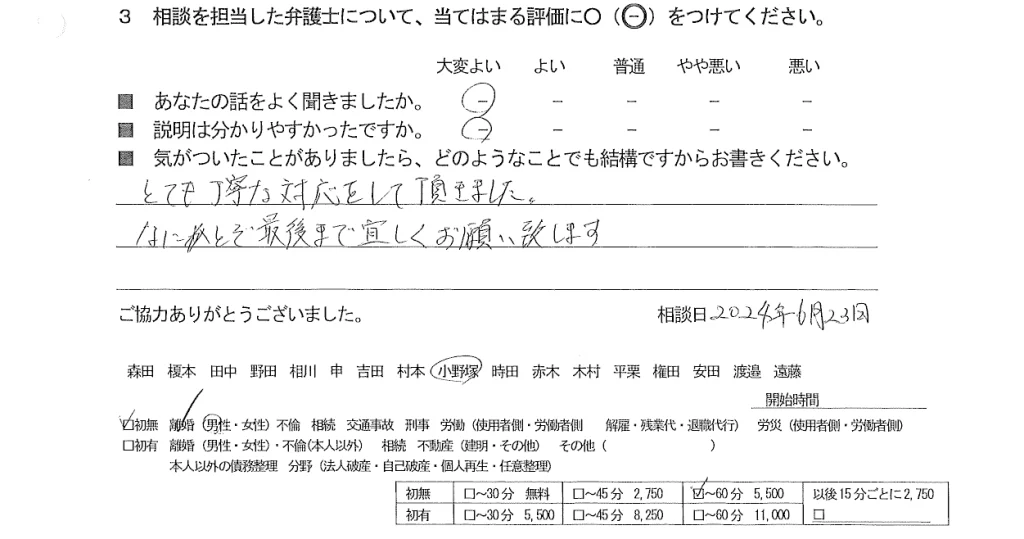 3 相談を担当した弁護士について、当てはまる評価に○（㊀）をつけてください。
大変よい よい 普通 やや悪い 悪い
■ あなたの話をよく聞きましたか。 － － － － －
■ 説明は分かりやすかったですか。 － － － － －
■ 気がついたことがありましたら、どのようなことでも結構ですからお書きください。
とても丁寧な対応をして頂きました。
なにとぞ最後まで宜しくお願い致します
ご協力ありがとうございました。 相談日2024年6月23日
森田 榎本 田中 野田 相川 申 吉田 村本 小野塚 時田 赤木 木村 平栗 権田 安田 渡邉 遠藤
開始時間
☑初無 離婚（男性・女性）不倫 相続 交通事故 刑事 労働（使用者側・労働者側 解雇・残業代・退職代行） 労災（使用者側・労働者側）
□初有 離婚（男性・女性）・不倫（本人以外） 相続 不動産（建明・その他） その他（ ）
本人以外の債務整理 分野（法人破産・自己破産・個人再生・任意整理）
初無 □～30分 無料 □～45分 2,750 ☑～60分 5,500 以後15分ごとに2,750
初有 □～30分 5,500 □～45分 8,250 □～60分 11,000 □